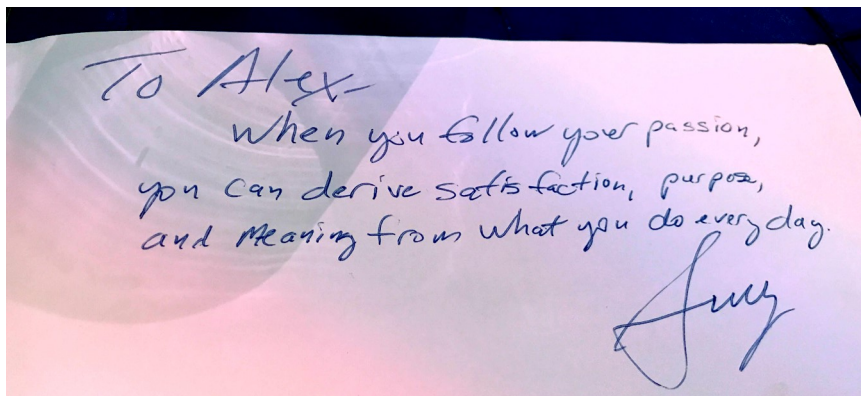 To Alex-
When you follow your passion,
you can derive satisfaction, purpose,
and meaning from what you do every day.